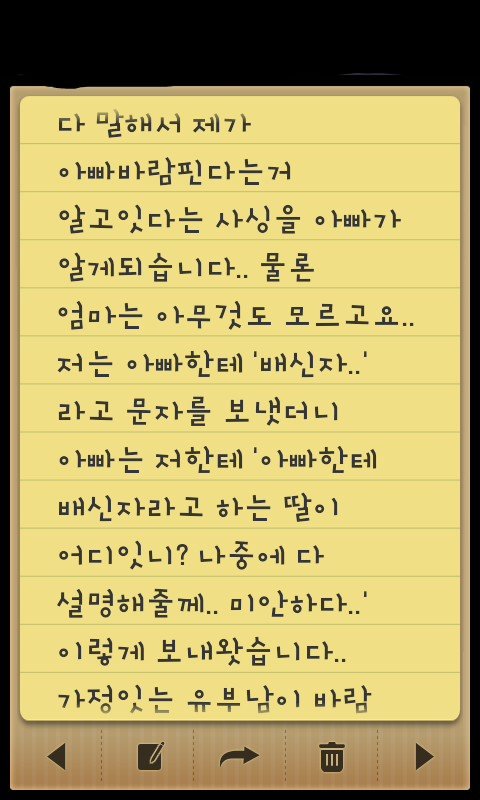 다 말해서 제가
아빠바람핀다는거
알고잇다는 사싱을 아빠가
알게되습니다.. 물론
엄마는 아무것도 모르고요..
저는 아빠한테 '배신자..'
라고 문자를 보냇더니
아빠는 저한테 '아빠한테
배신자라고 하는 딸이
어디잇니? 나중에 다
설명해줄께.. 미안하다..'
이렇게 보내왓습니다..
가정잇는 유부남이 바람